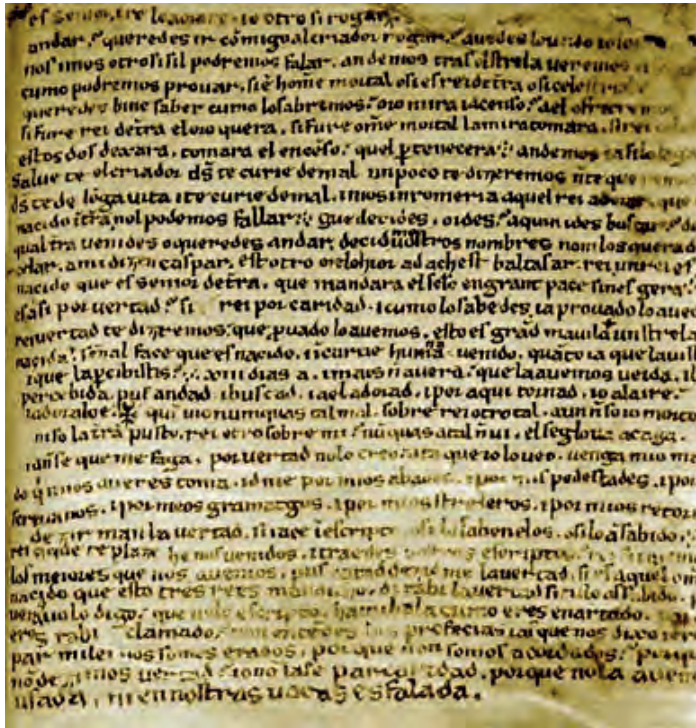 es senior, ire lo aorare. io otro si rogar
andar. queredes ir comigo al criador rogar. auedes lo uedo io lo
nos imos otrosi sil podremos falar. andemos tras el strela ueremos el
cumo podremos prouar. si es home mortal o si es rei de tra o si celestrial
queredes bine saber cumo lo sabremos. oro mira i acenso. a el ofrecremos
si fure rei de tra el oro quera. si fure ome mortal la mira tomara. si rei
estos dos dexara. tomara el encēso. quel ptenecera. andemos
Salue te el criador ds te curie de mal. un poco te dizeremos nō te que
ds te de lōga uita i te curie de mal. imos in romeria aquel rei adorar. que
nacido ī tra nol podemos fallar. que decides. o ides. a quin ides buscar.
qual tra uenides o queredes andar. decid nostros nombres nom los querades
celar. a mi dizen caspar. est otro melchior ad achest baltasar. rei un rei es
nacido que es senior de tra. que mandara el seclo en grant pace sines gera.
es asi por uertad. si rei por caridad. i cumo lo sabedes. ia prouado lo auedes
rei uertad te dizremos. que puado lo auemos. esto es grād mauila un strela
nacida. senal face que es nacido. i in curne humana uenido. quāto ia que la uistes
i que la pcibistis. xiii dias a. i mais nō auera. que la auemos ueida. i
percebida. pus andad i buscad. i a el adorad. i por aqui tornad. io ala ire.
i adoraloe. qui uio numquas tal mal. sobre rei otro tal. aun nō so io morto
ni so la tra pusto. rei otro sobre mi. nūquas atal nō ui. el seglo ua a caga.
ia nō se que me faga. por uertad no lo creo. ata que io lo ueo. uenga mio ma
do qi mios aueres toma. id me por mios abades. i por mis podestades. i por
scriuanos. i por meos gramatgos. i por mios streleros. i por mios retoricos
dezir man la uertad. si iace i escripto o si lo saben elos. o si lo ā sabido.
rei que te plaze he nos uenidos. i traedes uostros escriptos.
los meiores que nos auemos. pus catad dezid me la uertad. si es aquel ome
nacido que esto tres rees man dicho. di rabi la uertad si tu lo as sabido.
ueras io lo digo. que nolo escripto. hamihala cumo eres enartado.
eres rabi clamado. non entendes las profecias la que nos dixo ieremias
par mi lei nos somos erados. por que non somos acordados. por que
no dezimos uertad. io no la se par caridad. por que no la auemos
usada. ni en nostras uocas es falada.